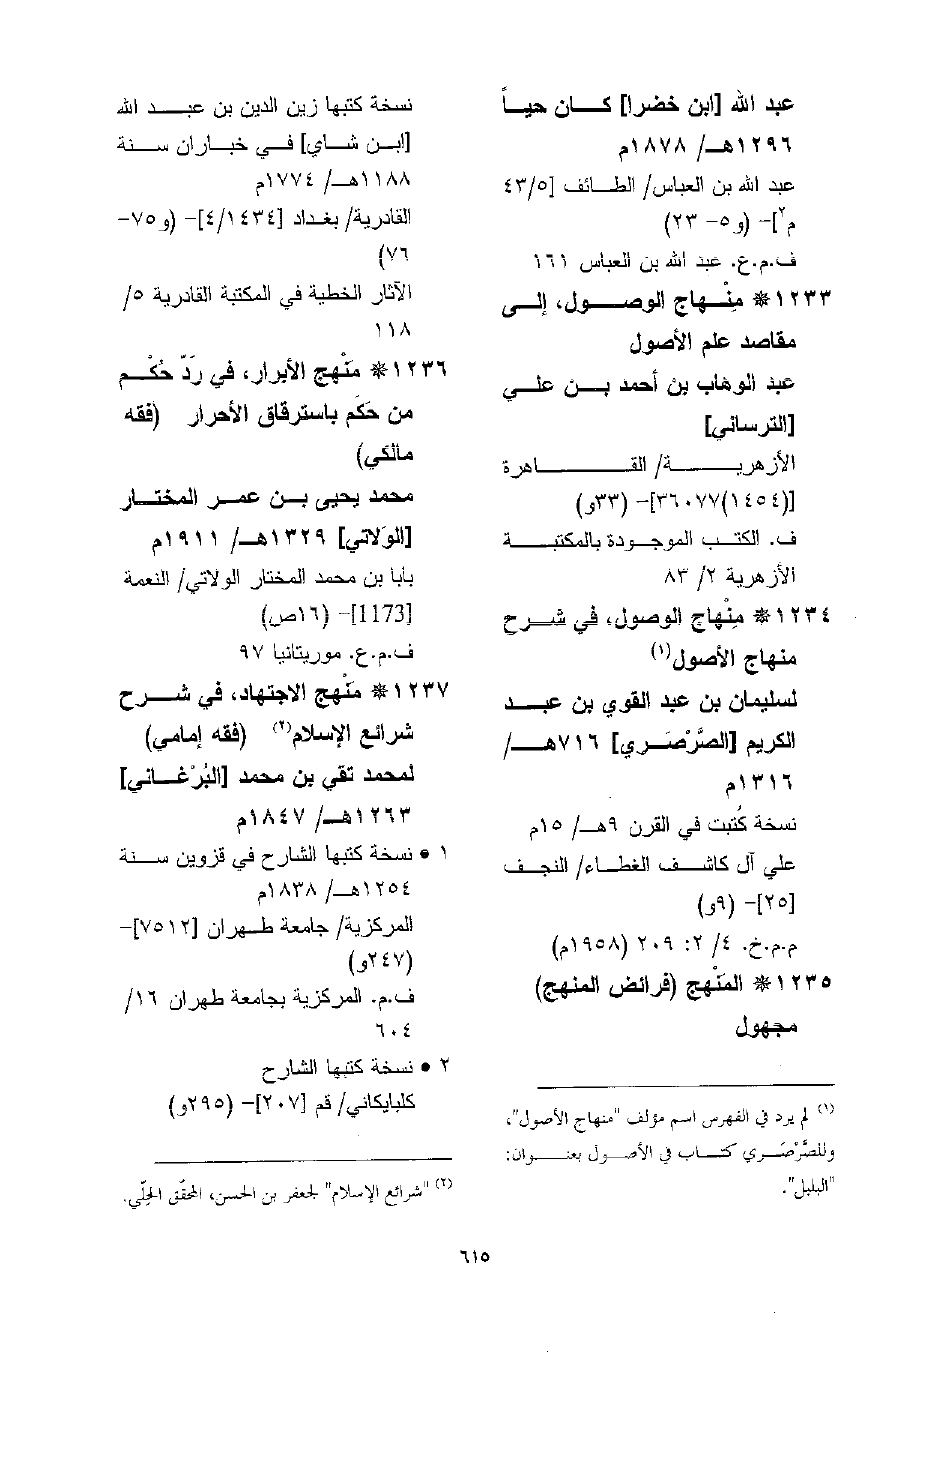 عبد الله [ابن خضرا] كان حياً
١٢٩٦هـ/ ١٨٧٨م
عبد الله بن العباس/ الطائف [٤٣/٥
م٢]- (و٥- ٢٣)
ف.م.ع. عبد الله بن العباس ١٦١
١٢٣٣* مِنْهاج الوصول، إلى
مقاصد علم الأصول
عبد الوهاب بن أحمد بن علي
[الترساني]
الأزهرية/ القاهرة
[(١٤٥٤)٣٦٠٧٧]- (٣٣و)
ف. الكتب الموجودة بالمكتبة
الأزهرية ٢/ ٨٣
١٢٣٤* مِنْهاج الوصول، في شرح
منهاج الأصول(١)
لسليمان بن عبد القوي بن عبد
الكريم [الصَّرْصَري] ٧١٦هـ/
١٣١٦م
نسخة كُتبت في القرن ٩هـ/ ١٥م
علي آل كاشف الغطاء/ النجف
[٢٥]- (٩و)
م.م.خ. ٤/ ٢: ٢٠٩ (١٩٥٨م)
١٢٣٥* المَنْهج (فرائض المنهج)
مجهول
(١) لم يرد في الفهرس اسم مؤلف "منهاج الأصول"،
وللصَّرْصَري كتاب في الأصول بعنوان:
"البلبل".
نسخة كتبها زين الدين بن عبد الله
[ابن شاي] في خباران سنة
١١٨٨هـ/ ١٧٧٤م
القادرية/ بغداد [٤/١٤٣٤]- (و٧٥-
٧٦)
الآثار الخطية في المكتبة القادرية ٥/
١١٨
١٢٣٦* مَنْهج الأبرار، في رَدّ حُكْم
من حَكَم باسترقاق الأحرار (فقه
مالكي)
محمد يحيى بن عمر المختار
[الوَلاتي] ١٣٢٩هـ/ ١٩١١م
بابا بن محمد المختار الولاتي/ النعمة
[1173]- (١٦ص)
ف.م.ع. موريتانيا ٩٧
١٢٣٧* مَنْهج الاجتهاد، في شرح
شرائع الإسلام(٢) (فقه إمامي)
لمحمد تقي بن محمد [البُرْغاني]
١٢٦٣هـ/ ١٨٤٧م
١ • نسخة كتبها الشارح في قزوين سنة
١٢٥٤هـ/ ١٨٣٨م
المركزية/ جامعة طهران [٧٥١٢]-
(٢٤٧و)
ف.م. المركزية بجامعة طهران ١٦/
٦٠٤
٢ • نسخة كتبها الشارح
كلبايكاني/ قم [٢٠٧]- (٢٩٥و)
(٢) "شرائع الإسلام" لجعفر بن الحسن، المحقّق الحِلّي.
٦١٥